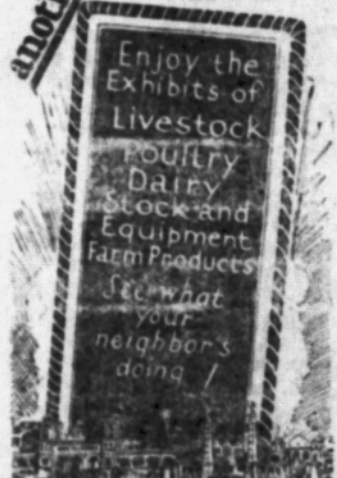 Enjoy the
Exhibits of
Livestock
Poultry
Dairy
Stock and
Equipment
Farm Products
See what
your
neighbor's
doing !